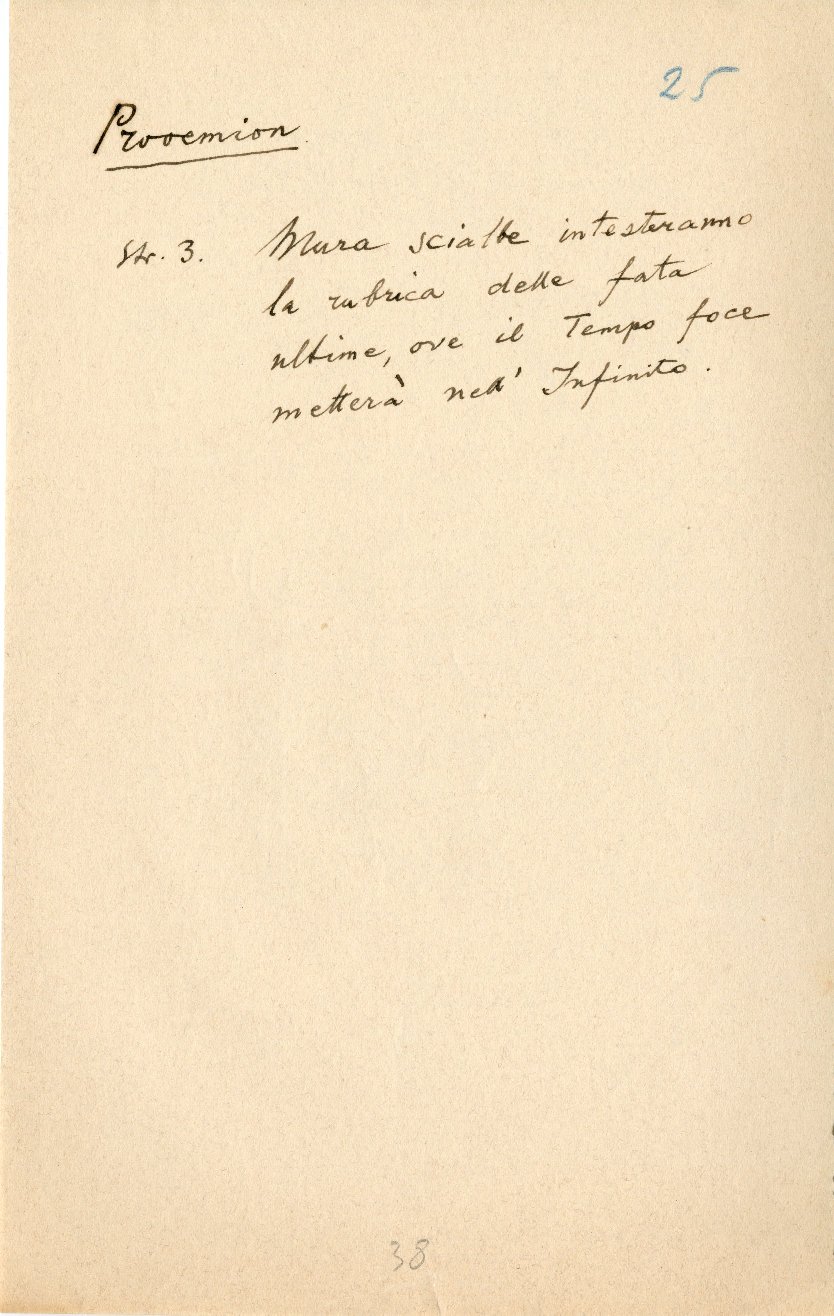 25
Prooemion
Str. 3. Mura scialbe intesteranno
la rubrica delle fata
ultime, ove il Tempo foce
metterà nell' Infinito.
38